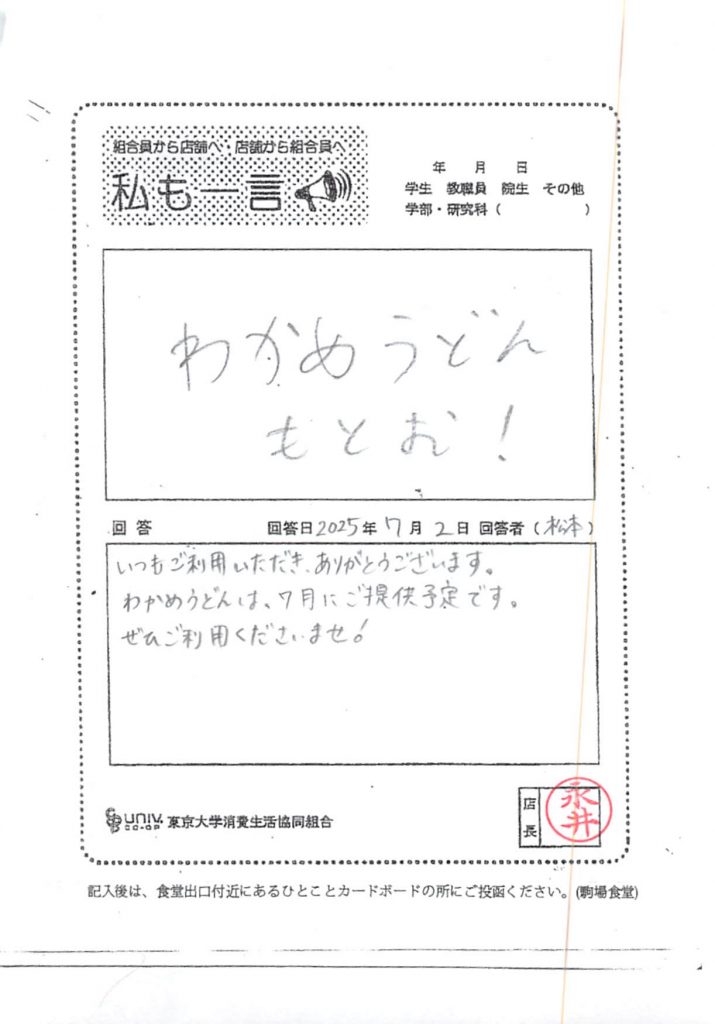 組合員から店舗へ・店舗から組合員へ
私も一言
年 月 日
学生 教職員 院生 その他
学部・研究科 ( )
わかめうどん
もとむ!
回答 回答日2025年7月2日 回答者(松本)
いつもご利用いただき、ありがとうございます。
わかめうどんは、7月にご提供予定です。
ぜひご利用くださいませ!
UNIV. CO-OP 東京大学消費生活協同組合
店長 永井
記入後は、食堂出口付近にあるひとことカードボードの所にご投函ください。(駒場食堂)